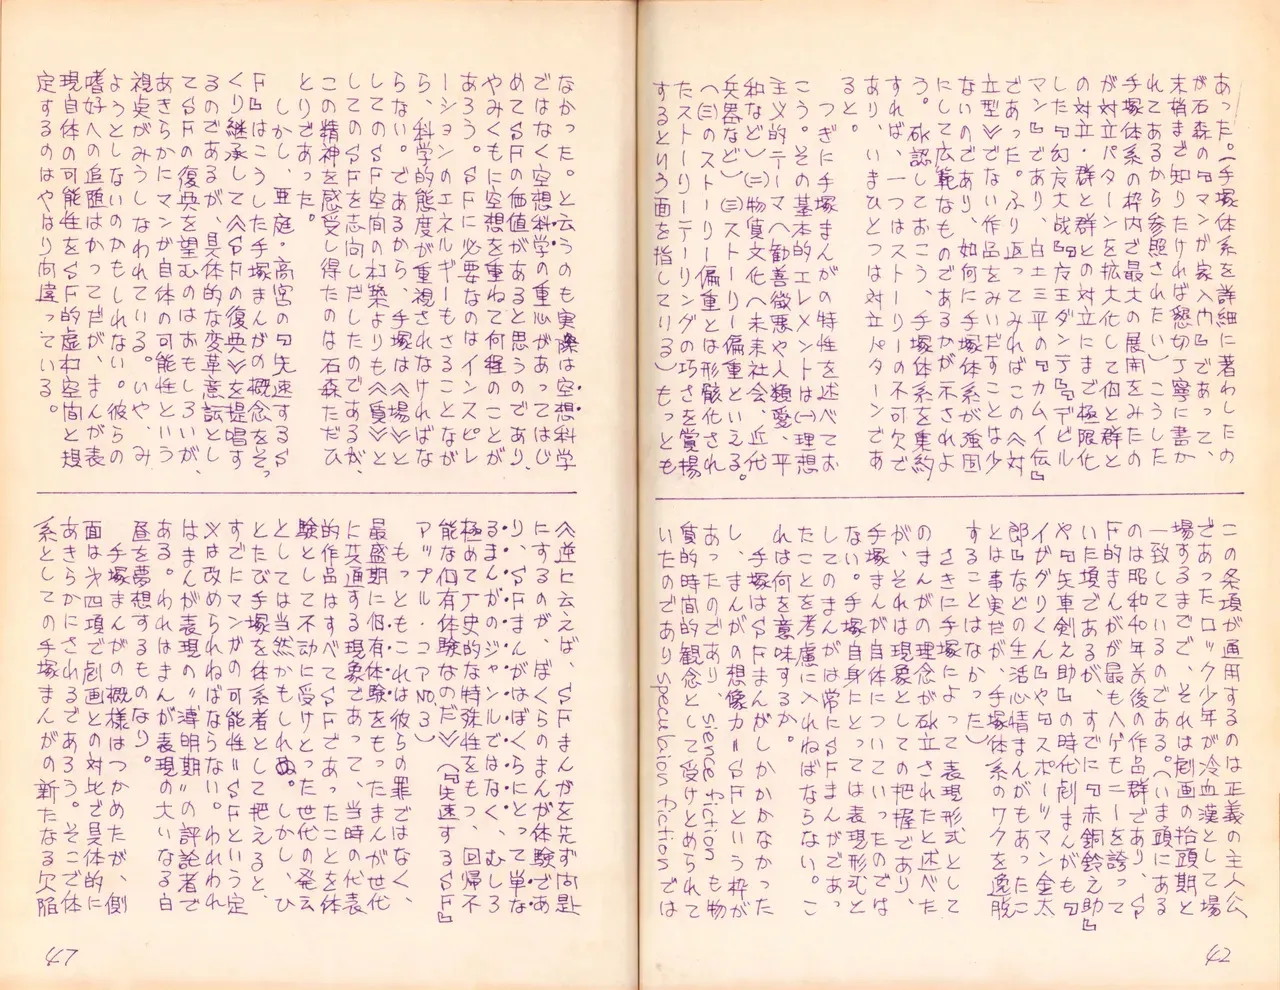 あった。(手塚体系を詳細に著わしたの
が石森の『マンガ家入門』であって、
末梢まで知りたければ懇切丁寧に書か
れてあるから参照されたい)こうした
手塚体系の枠内で最大の展開をみたの
が対立パターンを拡大化して個と群と
の対立・群と群との対立にまで極限化
した『幻魔大戦』『魔王ダンテ』『デビル
マン』であり、白土三平の『カムイ伝』
であった。ふり返ってみればこの《対
立型》でない作品をみいだすことは少
ないのであり、如何に手塚体系が強固
にして広範なものであるかが示されよ
う。確認しておこう、手塚体系を集約
すれば、一つはストーリーの不可欠で
あり、いまひとつは対立パターンであ
ると。
つぎに手塚まんがの特性を述べてお
こう。その基本的エレメントは㈠理想
主義的テーマへ勧善徴悪や人類愛、平
和など)㈡物質文化へ未来社会、近代
兵器など)㈢ストーリー偏重といえる。
(㈢のストーリー偏重とは形骸化され
たストーリーテーリングの巧さを賞揚
するという面を指している)もっとも
この条項が通用するのは正義の主人公
であったロック少年が冷血漢として場
場するまでで、それは劇画の抬頭期と
一致しているのである。(いま頭にある
のは昭和和年前後の作品群であり、S
F的まんがが最もヘゲモニーを誇って
いた頃であるが、すでに『赤銅鈴之助』
や『矢車剣之助』の時代劇まんがも『
イガグリくん』や『スポーツマン金太
郎』などの生活心情まんがもあったこ
とは事実だが、手塚体系のワクを逸脱
することはなかった)
さきに手塚によって表現形式として
のまんがの理念が確立されたと述べた
が、それは現象としての把握であり、
手塚まんが自体についていったのでは
ない。手塚自身にとっては表現形式と
してのまんがは常にSFまんがであっ
たことを考慮に入れねばならない。こ
れは何を意味するか。
手塚はSFまんがしかかかなかった
し、まんがの想像力=SFという枠が
あったのであり、sience fictionも物
質的時間的観念として受けとめられて
いたのでありspeculation fictionでは
42
なかった。と云うのも実際は空想科学
ではなく空想科学の重心があってはじ
めてSFの価値があると思うのであり、
やみくもに空想を重ねて何程のことが
あろう。SFに必要なのはインスピレ
ーションのエネルギーもさることなが
ら、科学的態度が重視されなければな
らない。であるから、手塚は《場》と
してのSF空間の構築よりも《質》と
してのSFを志向しだしたのであるが、
この精神を感受し得たのは石森ただひ
とりであった。
しかし、亜庭・高宮の『失速するS
F』はこうした手塚まんがの概念をそっ
くり継承して《SFの復興》を提唱す
るのであるが、具体的な変革意訟とし
てSFの復興を望むのはおもしろいが、
あきらかにマンガ自体の可能性という
視点がみうしなわれている。いや、み
ようとしないのかもしれない。彼らの
嗜好への追随はかってだが、まんが表
現自体の可能性をSF的虚構空間と規
定するのはやはり間違っている。
《逆に云えば、SFまんがを先ず問題
にするのが、ぼくらのまんが体験であ
り、SFまんがはぼくらにとって単な
るまんがのジャンルではなく、むしろ
極めて歴史的な特殊性をもつ、回帰不
能な個有体験なのだ》(『失速するSF』
アップル・コアNO.3)
もっともこれは彼らの罪ではなく、
最盛期に個有体験をもったまんが世代
に共通する現象であって、当時の代表
的作品はすべてSFであったことを体
験として不動に受けとった世代の発云
としては当然かもしれぬ。しかし、ひ
とたび手塚を体系者として把えると、
すでにマンガの可能性=SFという定
义は改められねばならない。われわれ
はまんが表現の“薄明期”の評論者で
ある。われはまんが表現の大いなる白
昼を夢想するものなり。
手塚まんがの概様はつかめたが、側
面は㐧四項で劇画との対比で具体的に
あきらかにされるであろう。そこで体
系としての手塚まんがの新たなる欠陥
47